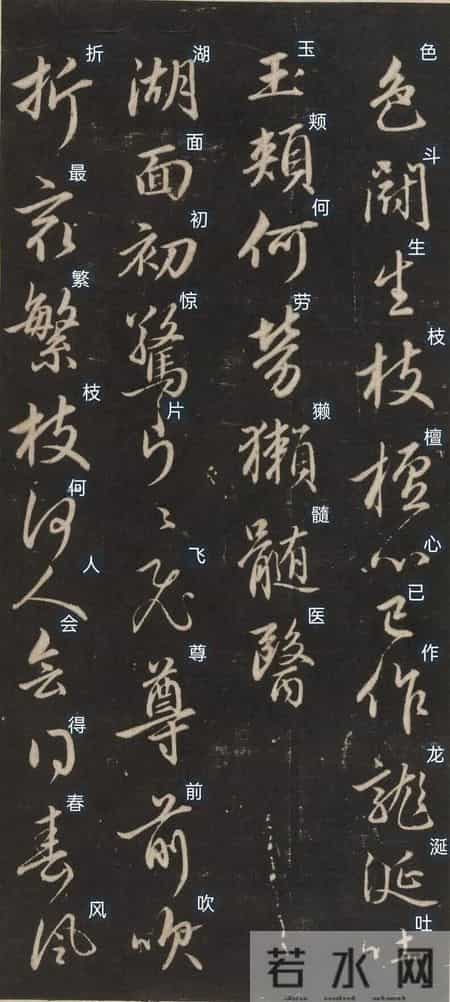 色鬪生枝檀心已作龍涎吐
色斗生枝檀心已作龙涎吐
玉頰何勞獺髓醫
玉颊何劳獭髓医
湖面初驚片〻飛尊前吹
湖面初惊片飞尊前吹
折最繁枝何人會得春風
折最繁枝何人会得春风
若水网